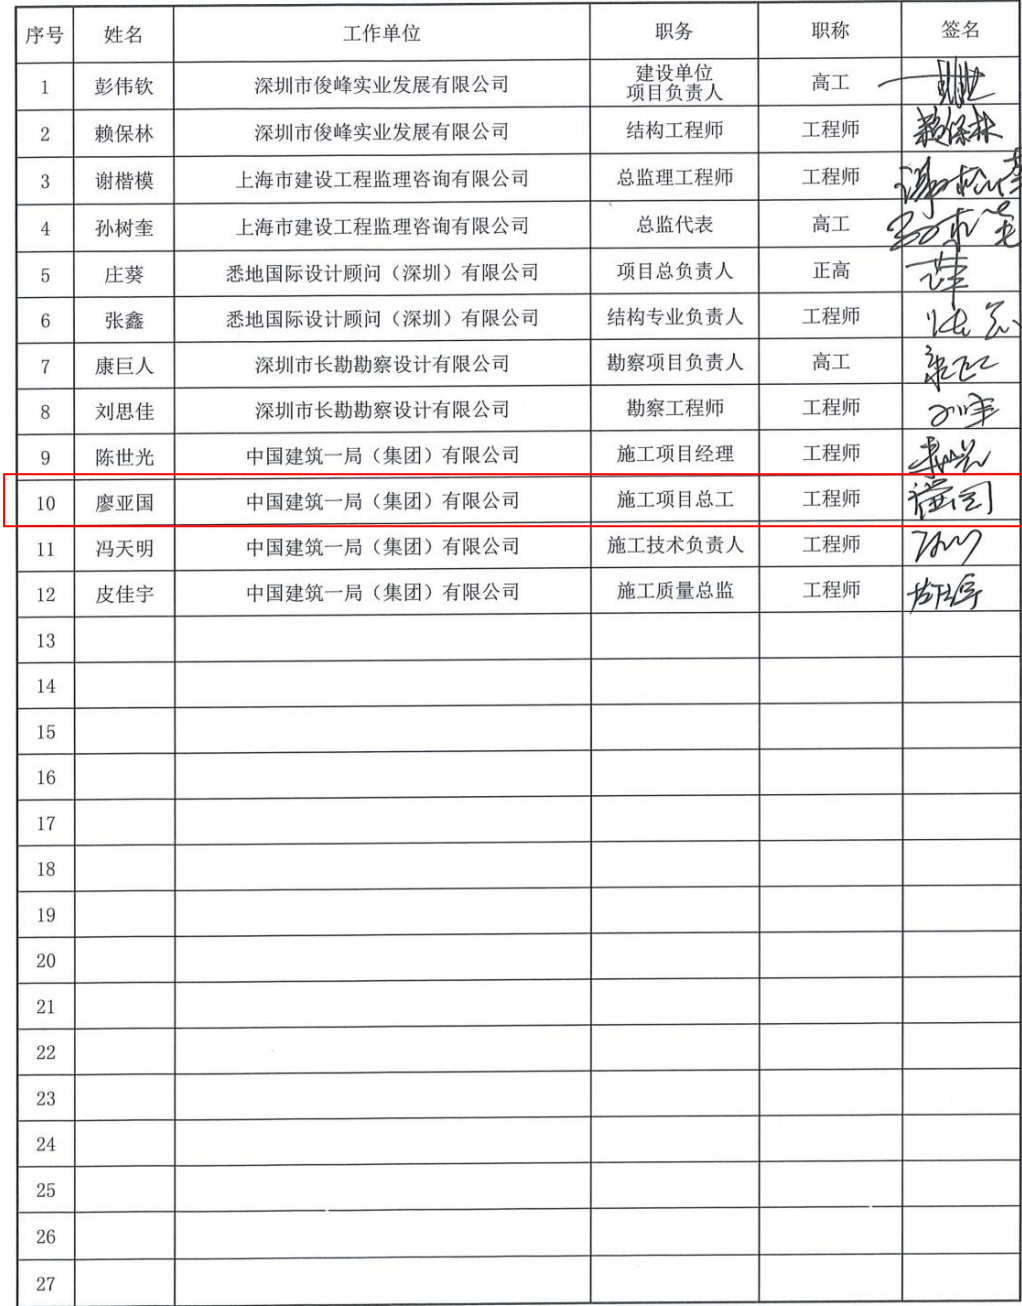 序号 姓名 工作单位 职务 职称 签名
1 彭伟钦 深圳市俊峰实业发展有限公司 建设单位 高工
项目负责人
2 赖保林 深圳市俊峰实业发展有限公司 结构工程师 工程师 赖保林
3 谢楷模 上海市建设工程监理咨询有限公司 总监理工程师 工程师
4 孙树奎 上海市建设工程监理咨询有限公司 总监代表 高工
5 庄葵 悉地国际设计顾问（深圳）有限公司 项目总负责人 正高
6 张鑫 悉地国际设计顾问（深圳）有限公司 结构专业负责人 工程师
7 康巨人 深圳市长勘勘察设计有限公司 勘察项目负责人 高工
8 刘思佳 深圳市长勘勘察设计有限公司 勘察工程师 工程师
9 陈世光 中国建筑一局（集团）有限公司 施工项目经理 工程师
10 廖亚国 中国建筑一局（集团）有限公司 施工项目总工 工程师
11 冯天明 中国建筑一局（集团）有限公司 施工技术负责人 工程师
12 皮佳宇 中国建筑一局（集团）有限公司 施工质量总监 工程师
13
14
15
16
17
18
19
20
21
22
23
24
25
26
27